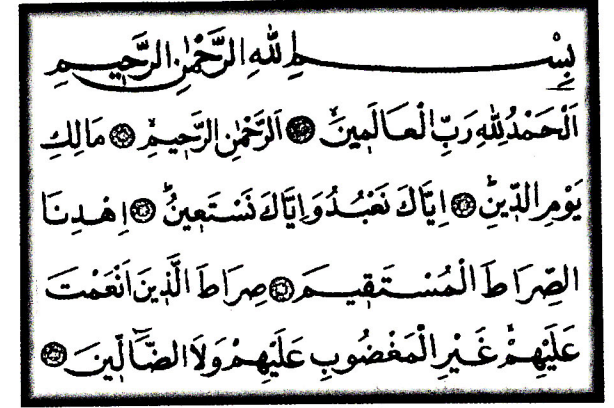 بِسْمِ اللهِ الرَّحْمٰنِ الرَّحِيمِ
اَلْحَمْدُ لِلّٰهِ رَبِّ الْعَالَمِينَ ۞ اَلرَّحْمٰنِ الرَّحِيمِ ۞ مَالِكِ
يَوْمِ الدِّينِ ۞ اِيَّاكَ نَعْبُدُ وَاِيَّاكَ نَسْتَعِينُ ۞ اِهْدِنَا
الصِّرَاطَ الْمُسْتَقِيمَ ۞ صِرَاطَ الَّذِينَ اَنْعَمْتَ
عَلَيْهِمْ غَيْرِ الْمَغْضُوبِ عَلَيْهِمْ وَلَا الضَّٓالِّينَ ۞